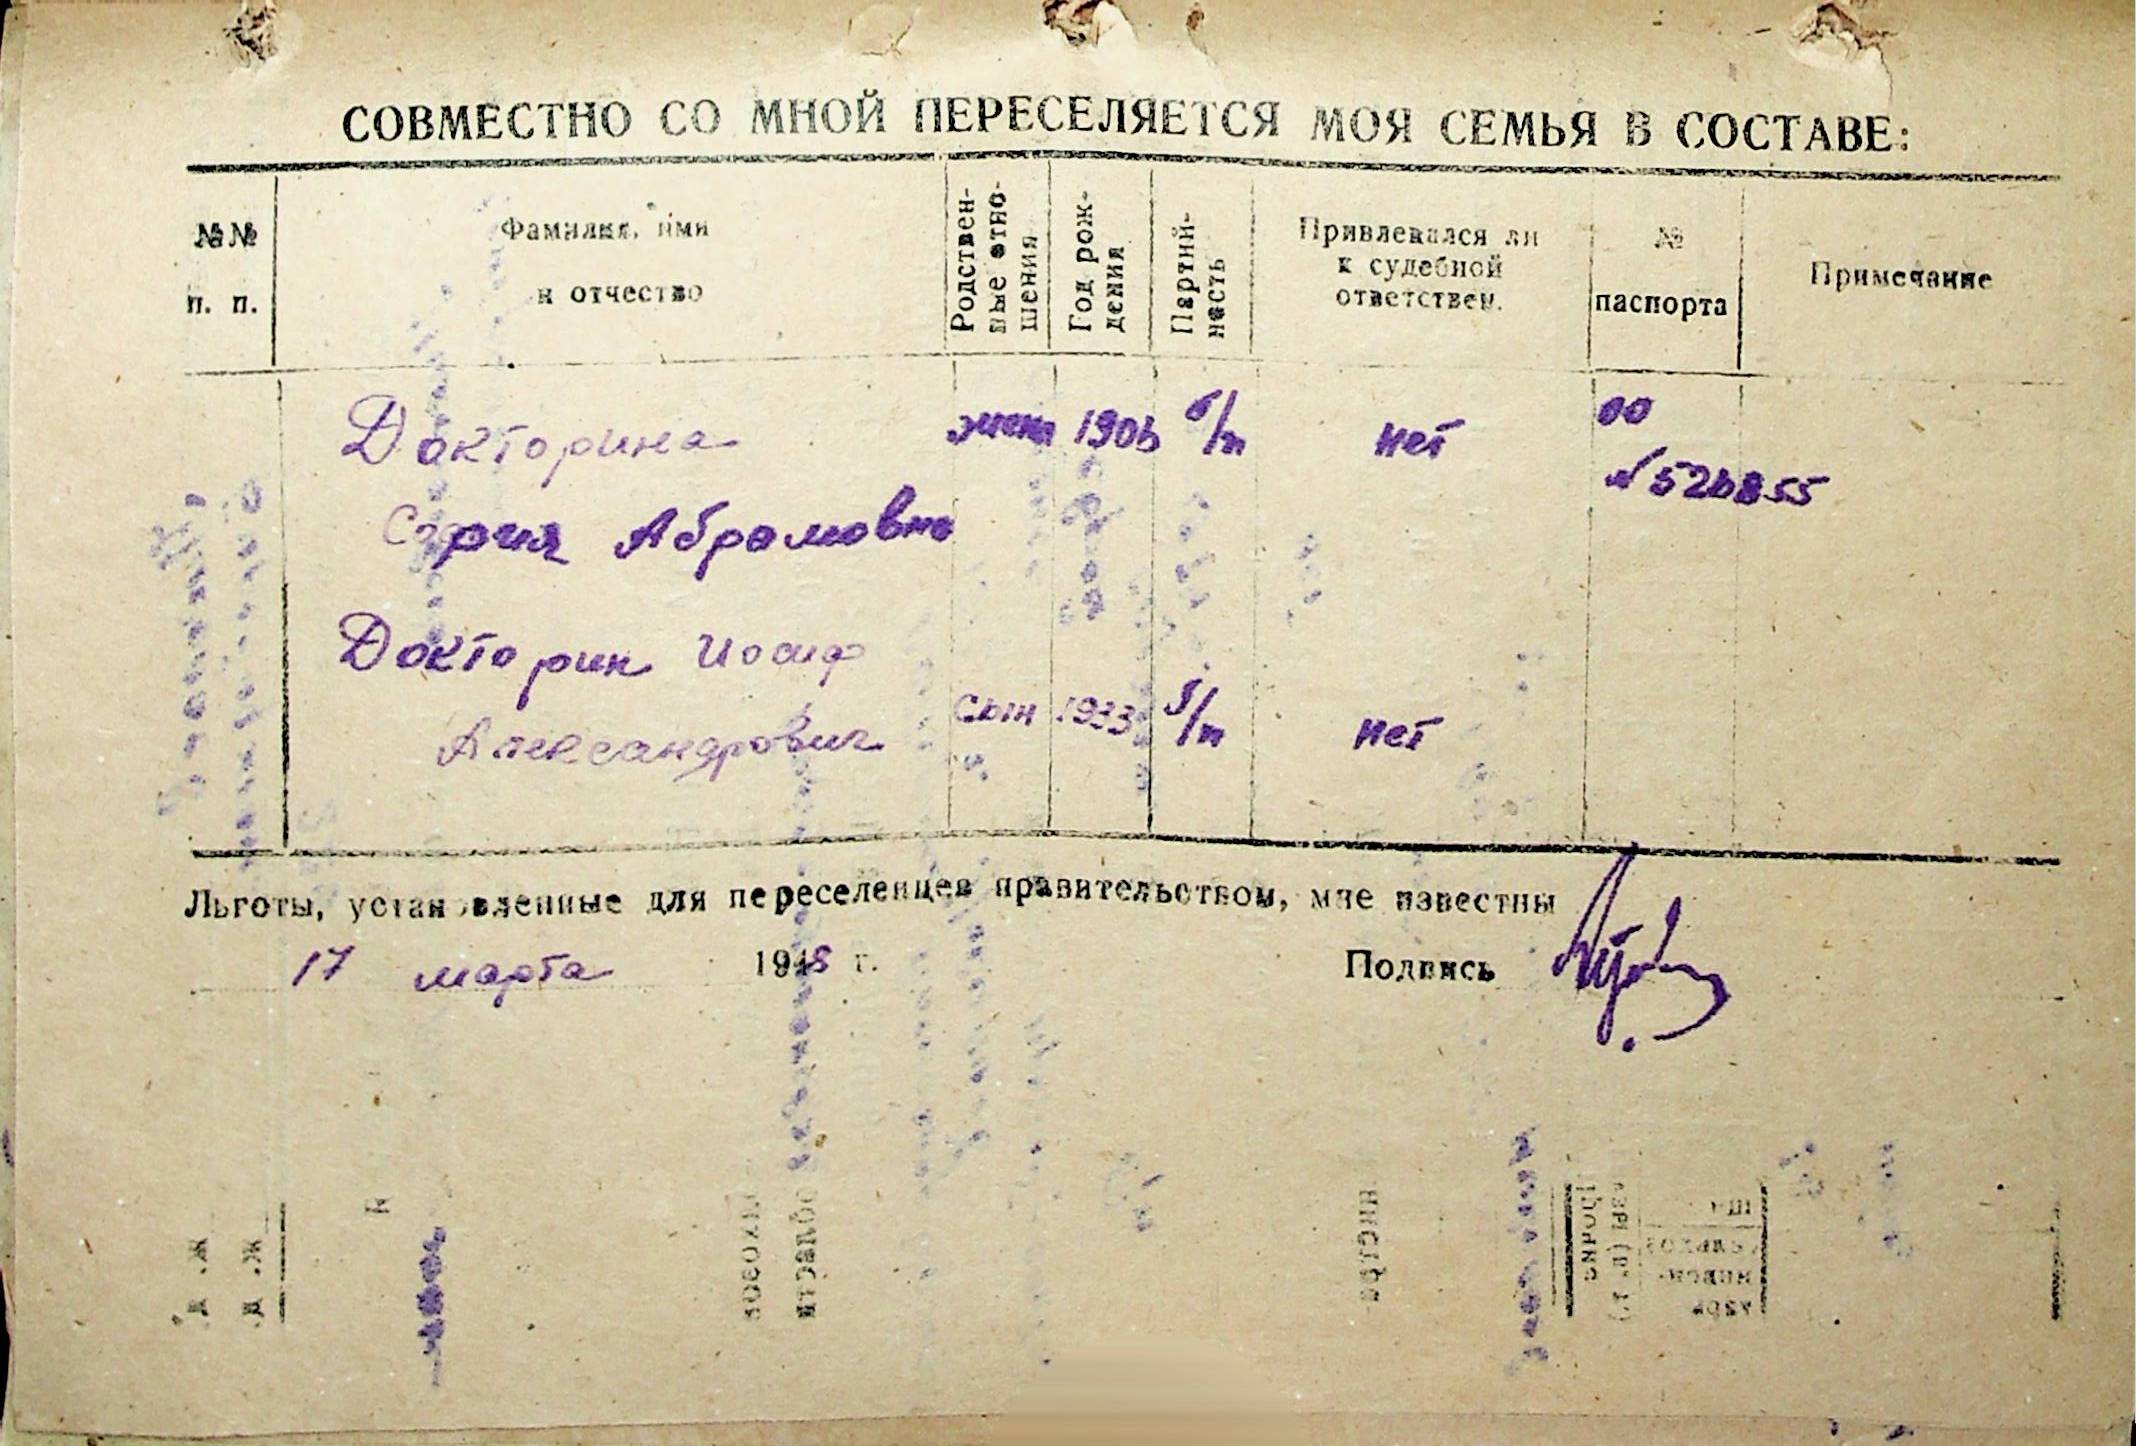 СОВМЕСТНО СО МНОЙ ПЕРЕСЕЛЯЕТСЯ МОЯ СЕМЬЯ В СОСТАВЕ:
№№ п. п.
Фамилия, имя и отчество
Родствен-ные отно-шения
Год рож-дения
Партий-ность
Привлекался ли к судебной ответствен.
№ паспорта
Примечание
Докторина жена 1906 б/п нет 00
Абрамовна № 526855
Докторин Иосиф
Александрович сын 1933 б/п нет
Льготы, установленные для переселенцев правительством, мне известны
17 марта 1948 г. Подпись